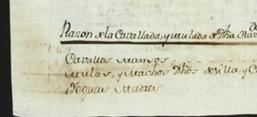 Razon de la Cavallada, y mulada de Dha
Cavallos Mansos
Mulas, y Machos Dhos de silla, y
Yeguas Madres